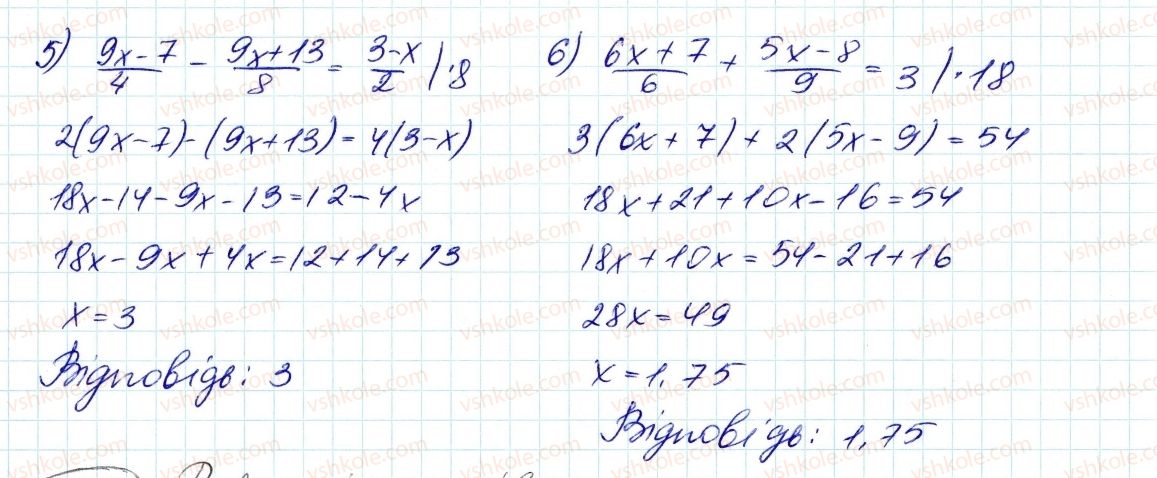 5) (9x-7)/4 - (9x+13)/8 = (3-x)/2 | ·8
2(9x-7)-(9x+13)=4(3-x)
18x-14-9x-13=12-4x
18x-9x+4x=12+14+13
x=3
Відповідь: 3
6) (6x+7)/6 + (5x-8)/9 = 3 | ·18
3(6x+7)+2(5x-9)=54
18x+21+10x-16=54
18x+10x=54-21+16
28x=49
x=1,75
Відповідь: 1,75